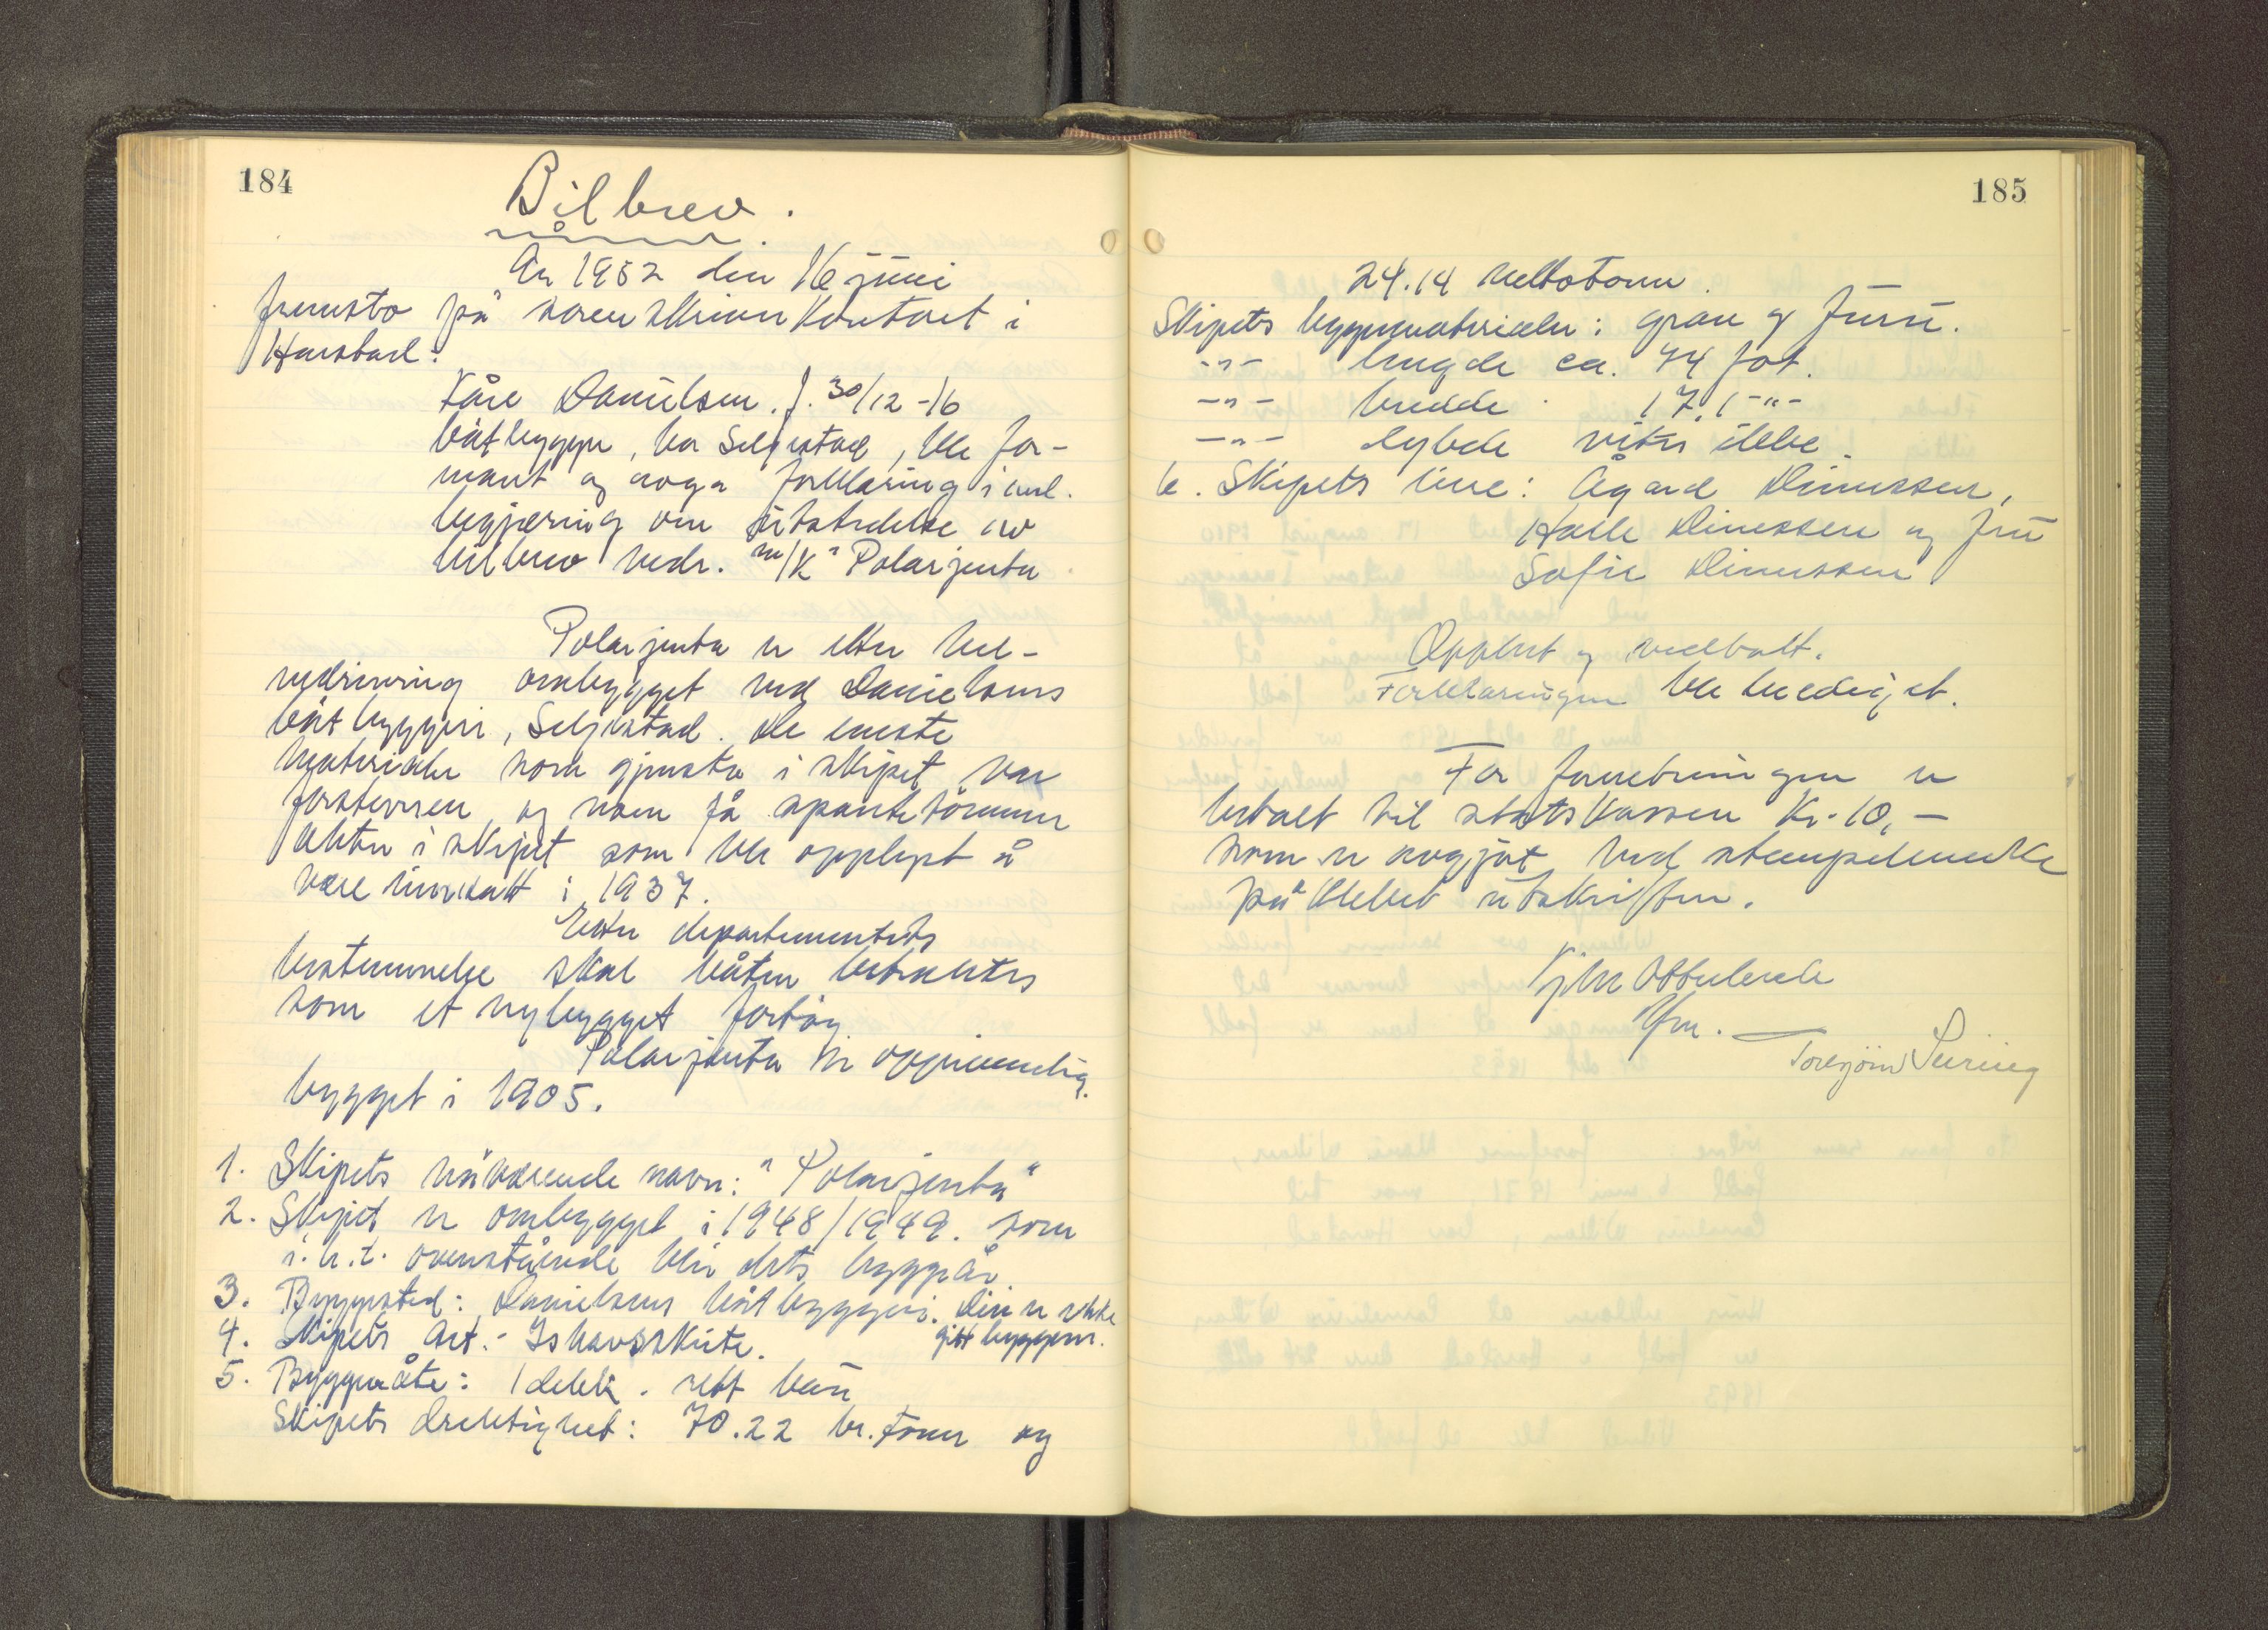 184
Bilbrev.
År 1952 den 16 juni
fremsto på sorenskriverkontoret i
Harstad:
Kåre Danielsen. f. 30/12-16
båtbygger, bor Seljestad, ble for-
mant og avga forklaring i anl.
begjæring om utstedelse av
bilbrev vedr. m/k "Polarjenta
Polarjenta er etter hel-
ombygget ved Danielsens
båtbyggeri, Seljestad. De eneste
materialer som gjensto i skipet var
og noen få spantetömmer
akter i skipet som ble opplyst å
være innsatt i 1937.
Etter departementets
bestemmelse skal båten betraktes
som et nybygget fartöy
Polarjenta er opprinnelig
bygget i 1905.
1. Skipets nåværende navn: "Polarjenta"
2. Skipet er ombygget i 1948/1949. som
i.h.t. ovenstående blir dets byggeår.
3. Byggested: Danielsens båtbyggeri. Den er ikke
gitt byggenr.
4. Skipets Art: - Ishavsskute.
5. Byggemåte: 1 dekk. rett bau
Skipets drektighet: 70.22 br. tonn og
185
24.14 nettotonn.
Skipets byggematerialer: gran og furu.
-"- lengde ca. 74 fot.
-"- bredde 17,1 -"-
-"- dybde vites ikke.
6. Skipets eiere: Ågard Dinessen,
Halle Dinessen og fru
Sofie Dinessen
Opplest og vedtatt.
Forklaringen ble beediget.
For forretningen er
betalt til statskassen Kr. 10,-
som er avgjort ved stempelmerke
på utskriften.
fm.
Torbjörn